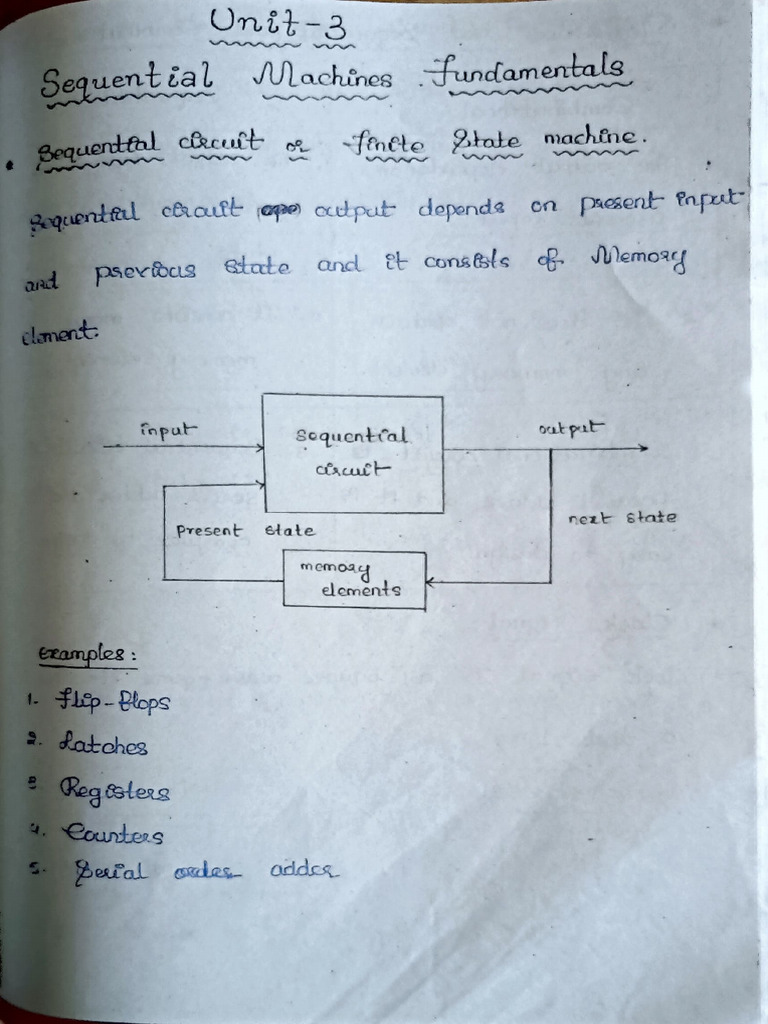 Unit-3
Sequential Machines fundamentals
Sequential circuit or finite state machine.
Sequential circuit output depends on present input
and previous state and it consists of Memory
element.
input
sequential
circuit
output
present state
next state
memory
elements
Examples:
1. flip-flops
2. Latches
3 Registers
4. Counters
5. Serial order adder